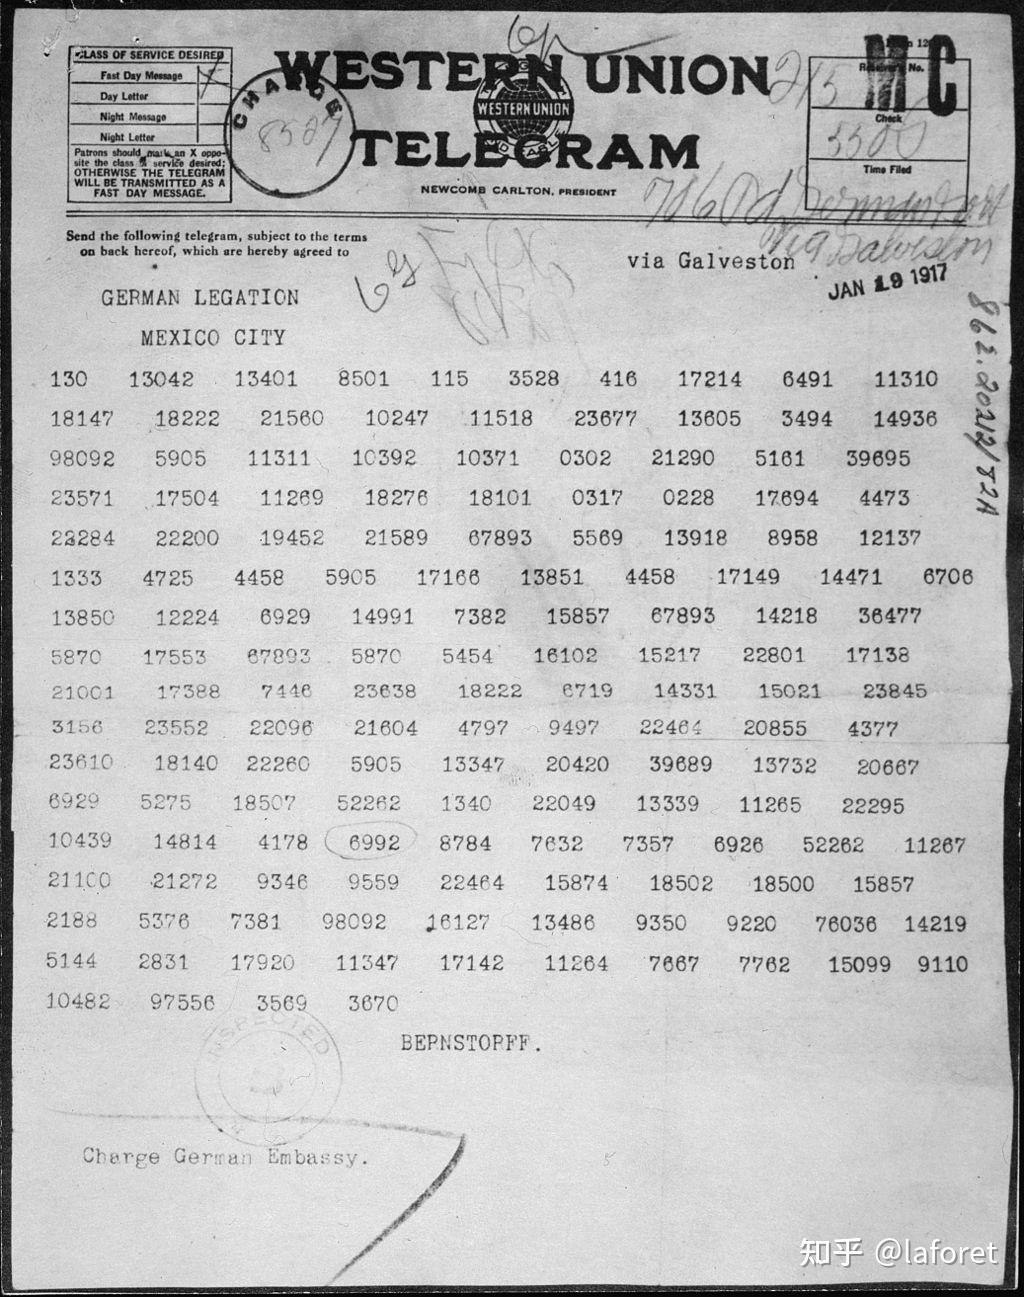 CLASS OF SERVICE DESIRED
Fast Day Message
Day Letter
Night Message
Night Letter
Patrons should mark an X oppo-
site the class of service desired;
OTHERWISE THE TELEGRAM
WILL BE TRANSMITTED AS A
FAST DAY MESSAGE.
CHARGE
WESTERN UNION
WESTERN UNION
TELEGRAM
NEWCOMB CARLTON, PRESIDENT
Receiver's No.
MC
Check
Time Filed
Send the following telegram, subject to the terms
on back hereof, which are hereby agreed to
via Galveston
via Galveston
JAN 19 1917
GERMAN LEGATION
MEXICO CITY
130 13042 13401 8501 115 3528 416 17214 6491 11310
18147 18222 21560 10247 11518 23677 13605 3494 14936
98092 5905 11311 10392 10371 0302 21290 5161 39695
23571 17504 11269 18276 18101 0317 0228 17694 4473
22284 22200 19452 21589 67893 5569 13918 8958 12137
1333 4725 4458 5905 17166 13851 4458 17149 14471 6706
13850 12224 6929 14991 7382 15857 67893 14218 36477
5870 17553 67893 5870 5454 16102 15217 22801 17138
21001 17388 7446 23638 18222 6719 14331 15021 23845
3156 23552 22096 21604 4797 9497 22464 20855 4377
23610 18140 22260 5905 13347 20420 39689 13732 20667
6929 5275 18507 52262 1340 22049 13339 11265 22295
10439 14814 4178 6992 8784 7632 7357 6926 52262 11267
21100 21272 9346 9559 22464 15874 18502 18500 15857
2188 5376 7381 98092 16127 13486 9350 9220 76036 14219
5144 2831 17920 11347 17142 11264 7667 7762 15099 9110
10482 97556 3569 3670
BEPNSTOPFF.
INSPECTED
Charge German Embassy.
862.20212/82A
知乎 @laforet